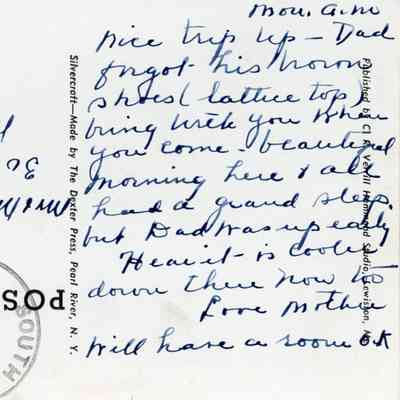 Mon. A.M
Nice trip up – Dad
forgot his brown
shoes (lattice top)
bring with you when
you come – beautiful
morning here & all
had a grand sleep.
but Dad was up early
Hear it is cooler
down there now to
Love Mother
Will have a room O.K
Silvercraft—Made by The Dexter Press, Pearl River, N. Y.
Published by
Studio, Lewiston,
POS
SOUTH